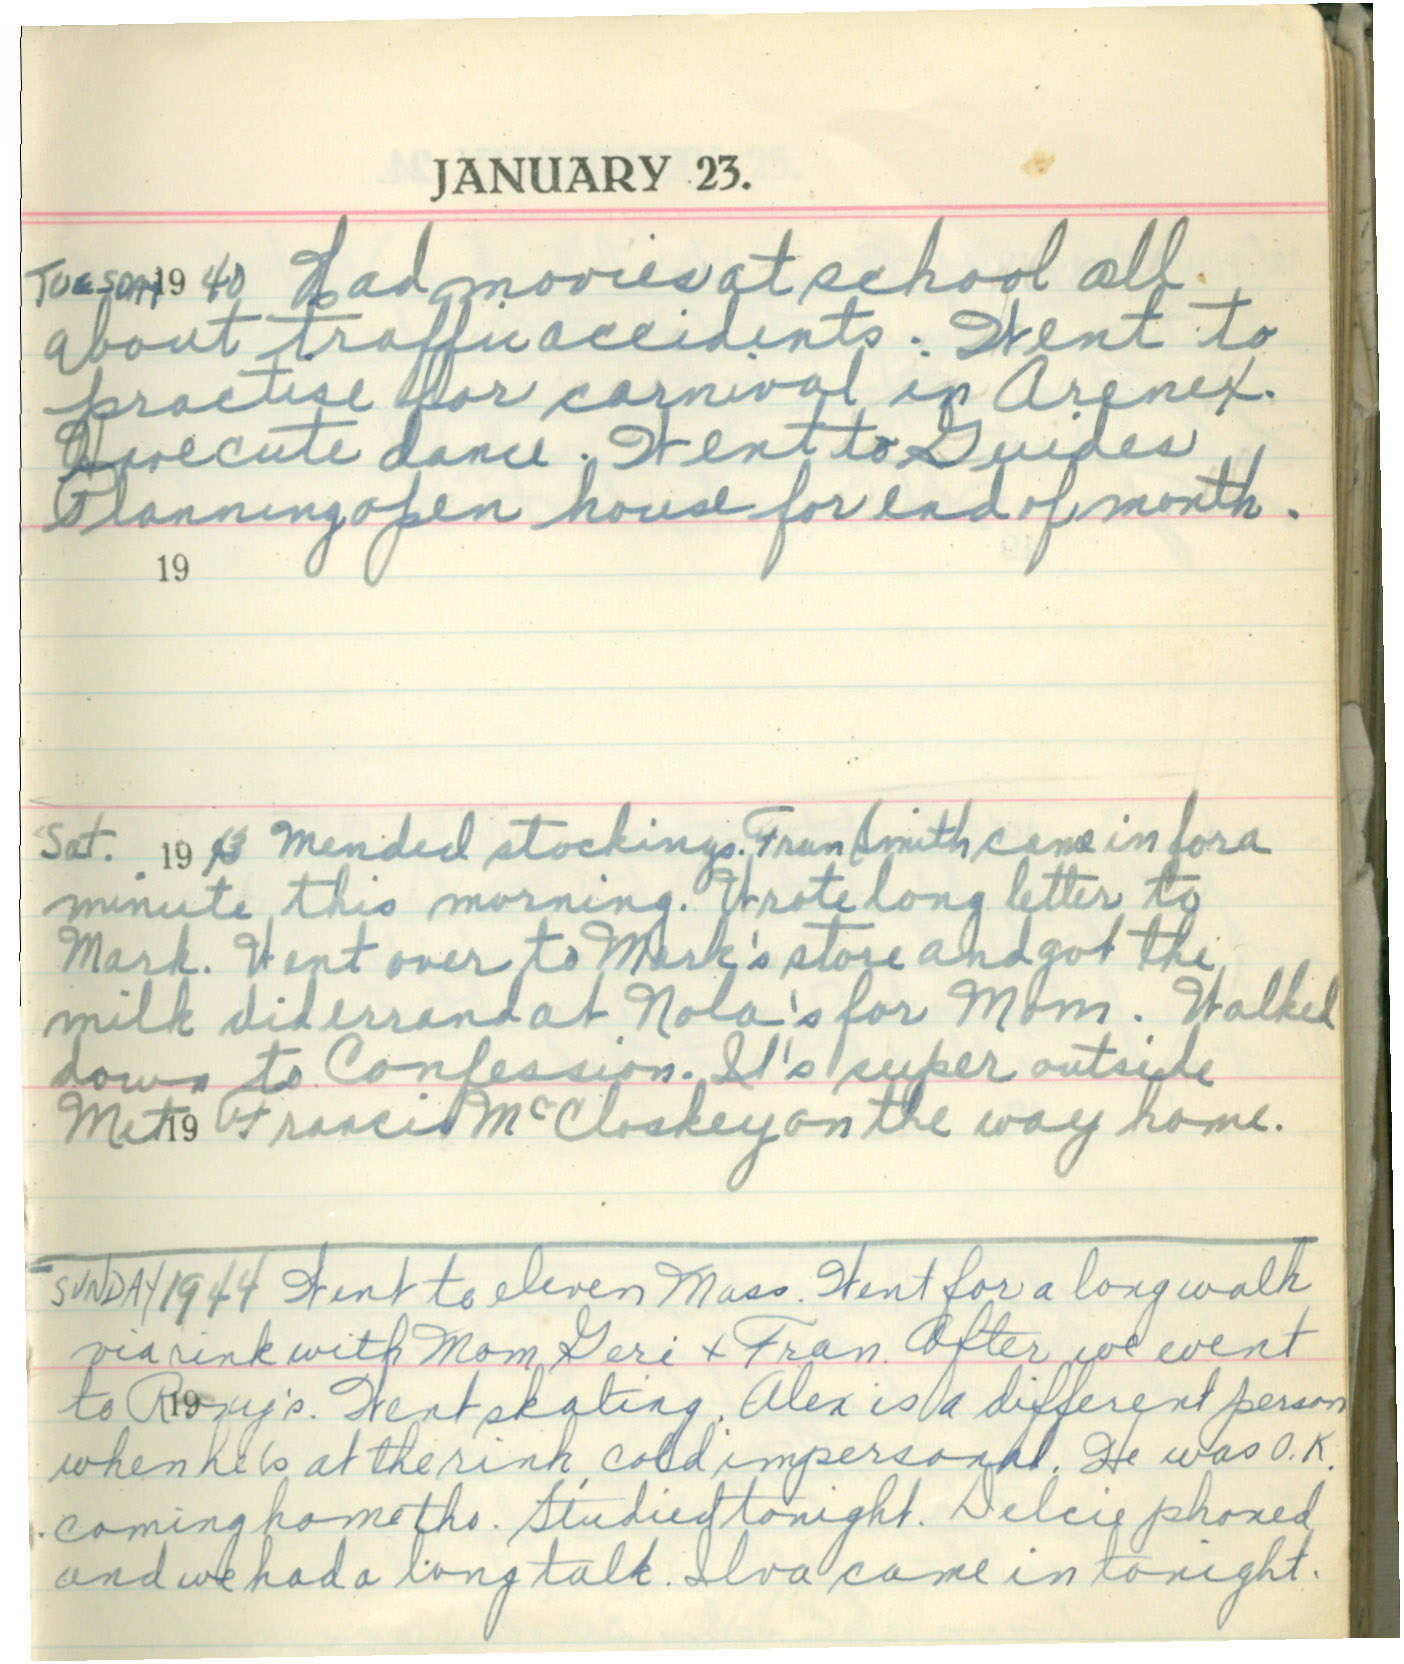 JANUARY 23.
TUESDAY 1940 Had movies at school all
about traffic accidents. Went to
practise for carnival in Arenex.
Have cute dance. Went to Guides
Planning open house for end of month.
19
Sat. 1943 Mended stockings. Fran Smith came in for a
minute this morning. Wrote long letter to
Mark. Went over to Mark's store and got the
milk did errand at Nola's for Mom. Walked
down to Confession. It's super outside
Met 19 Francis McCloskey on the way home.
SUNDAY 1944 Went to eleven Mass. Went for a long walk
via rink with Mom Geri + Fran. After we went
to 19 Went skating. Alex is a different person
when he's at the rink, cold impersonal. He was O.K.
coming home tho. Studied tonight. Delcie phoned
and we had a long talk. Ilva came in tonight.